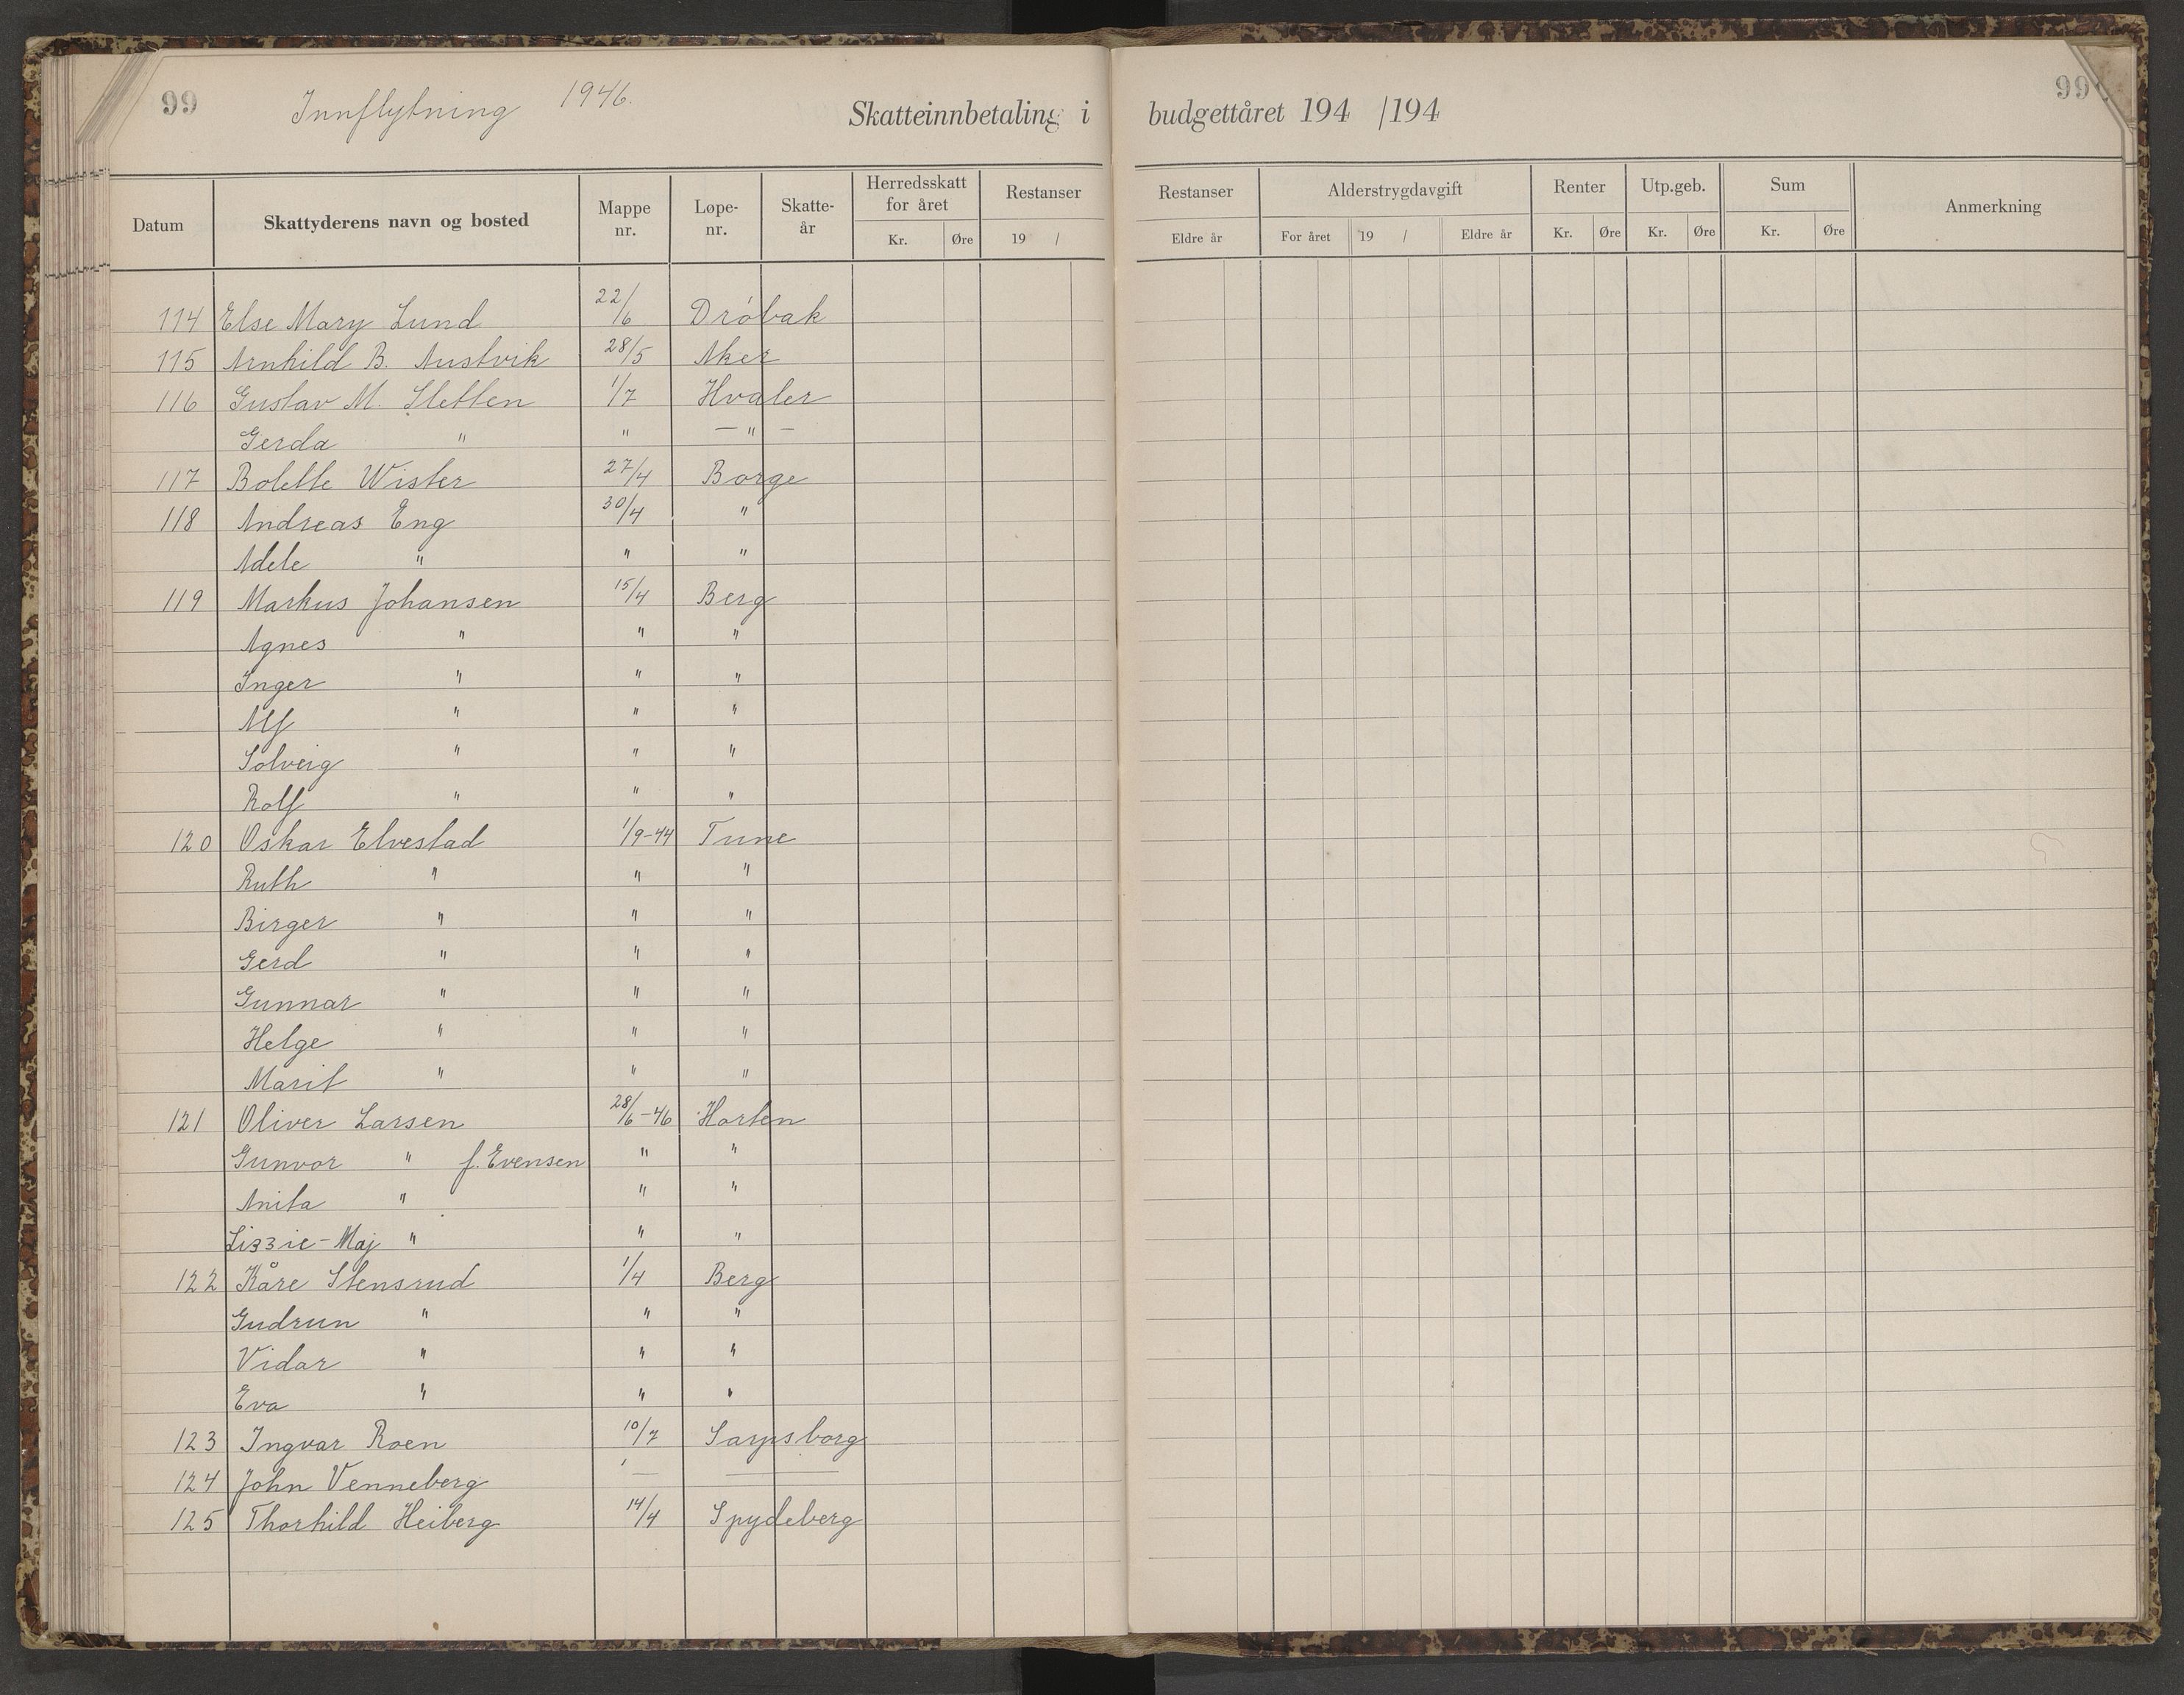 99 Innflytning 1946. Skatteinnbetaling i budgettåret 194 /194 99
Datum Skattyderens navn og bosted Mappe nr. Løpe-nr. Skatte-år Herredsskatt for året Kr. Øre Restanser 19 / Restanser Eldre år Alderstrygdavgift For året 19 / Eldre år Renter Kr. Øre Utp.geb. Kr. Øre Sum Kr. Øre Anmerkning
114 Else Mary Lund 22/6 Drøbak
115 Arnhild B. Austvik 28/5 Aker
116 Gustav M. Sletten 1/7 Hvaler
Gerda " " — " —
117 Bolette Wister 27/4 Borge
118 Andreas Eng 30/4 "
Adele " " "
119 Markus Johansen 15/4 Berg
Agnes " " "
Inger " " "
Alf " " "
Solveig " " "
Rolf " " "
120 Oskar Elvestad 1/9-44 Tune
Ruth " " "
Birger " " "
Gerd " " "
Gunnar " " "
Helge " " "
Marit " " "
121 Oliver Larsen 28/6-46 Horten
Gunvor " f. Evensen " "
Anita " " "
Lizzie-Maj " " "
122 Kåre Stensrud 1/4 Berg
Gudrun " " "
Vidar " " "
Eva " " "
123 Ingvar Roen 10/7 Sarpsborg
124 John Venneberg — —
125 Thorhild Heiberg 14/4 Spydeberg